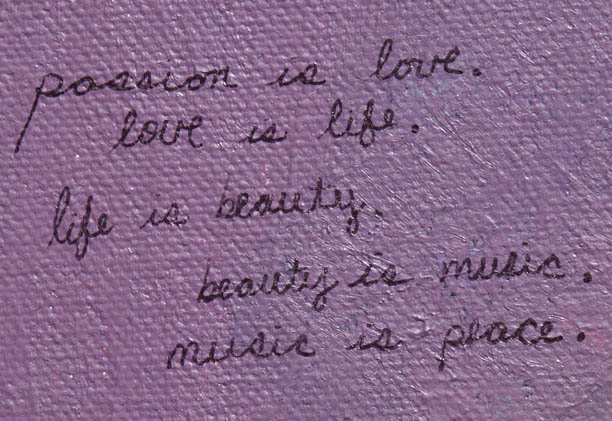 passion is love.
love is life.
life is beauty.
beauty is music.
music is peace.